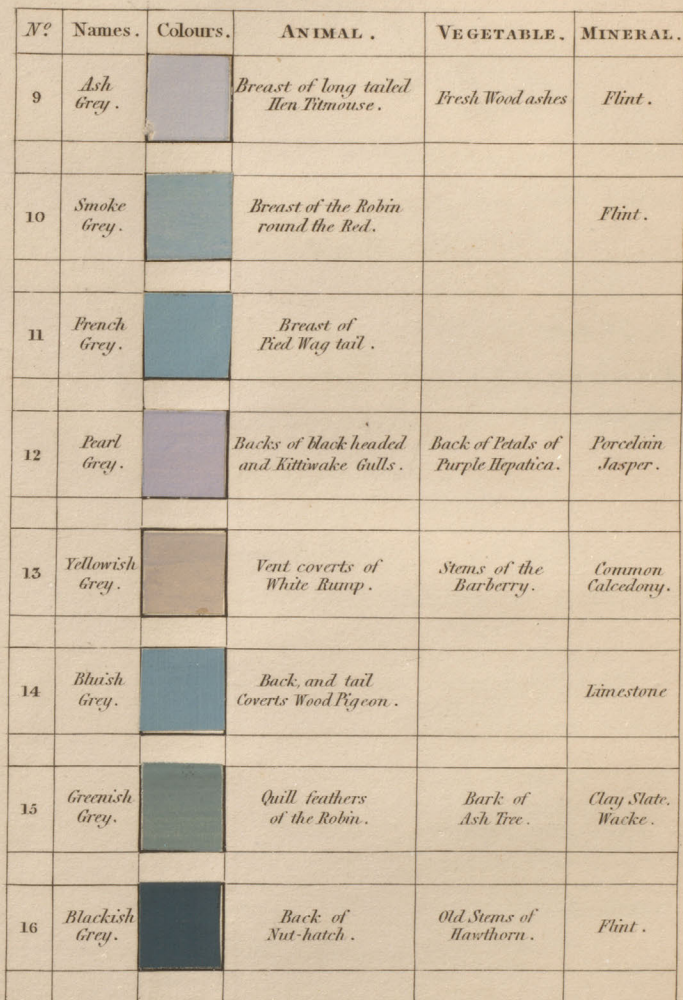 Nº Names. Colours. ANIMAL. VEGETABLE. MINERAL.
9 Ash Grey. Breast of long tailed Hen Titmouse. Fresh Wood ashes Flint.
10 Smoke Grey. Breast of the Robin round the Red. Flint.
11 French Grey. Breast of Pied Wag tail.
12 Pearl Grey. Backs of black headed and Kittiwake Gulls. Back of Petals of Purple Hepatica. Porcelain Jasper.
13 Yellowish Grey. Vent coverts of White Rump. Stems of the Barberry. Common Calcedony.
14 Bluish Grey. Back, and tail Coverts Wood Pigeon. Limestone
15 Greenish Grey. Quill feathers of the Robin. Bark of Ash Tree. Clay Slate. Wacke.
16 Blackish Grey. Back of Nut-hatch. Old Stems of Hawthorn. Flint.